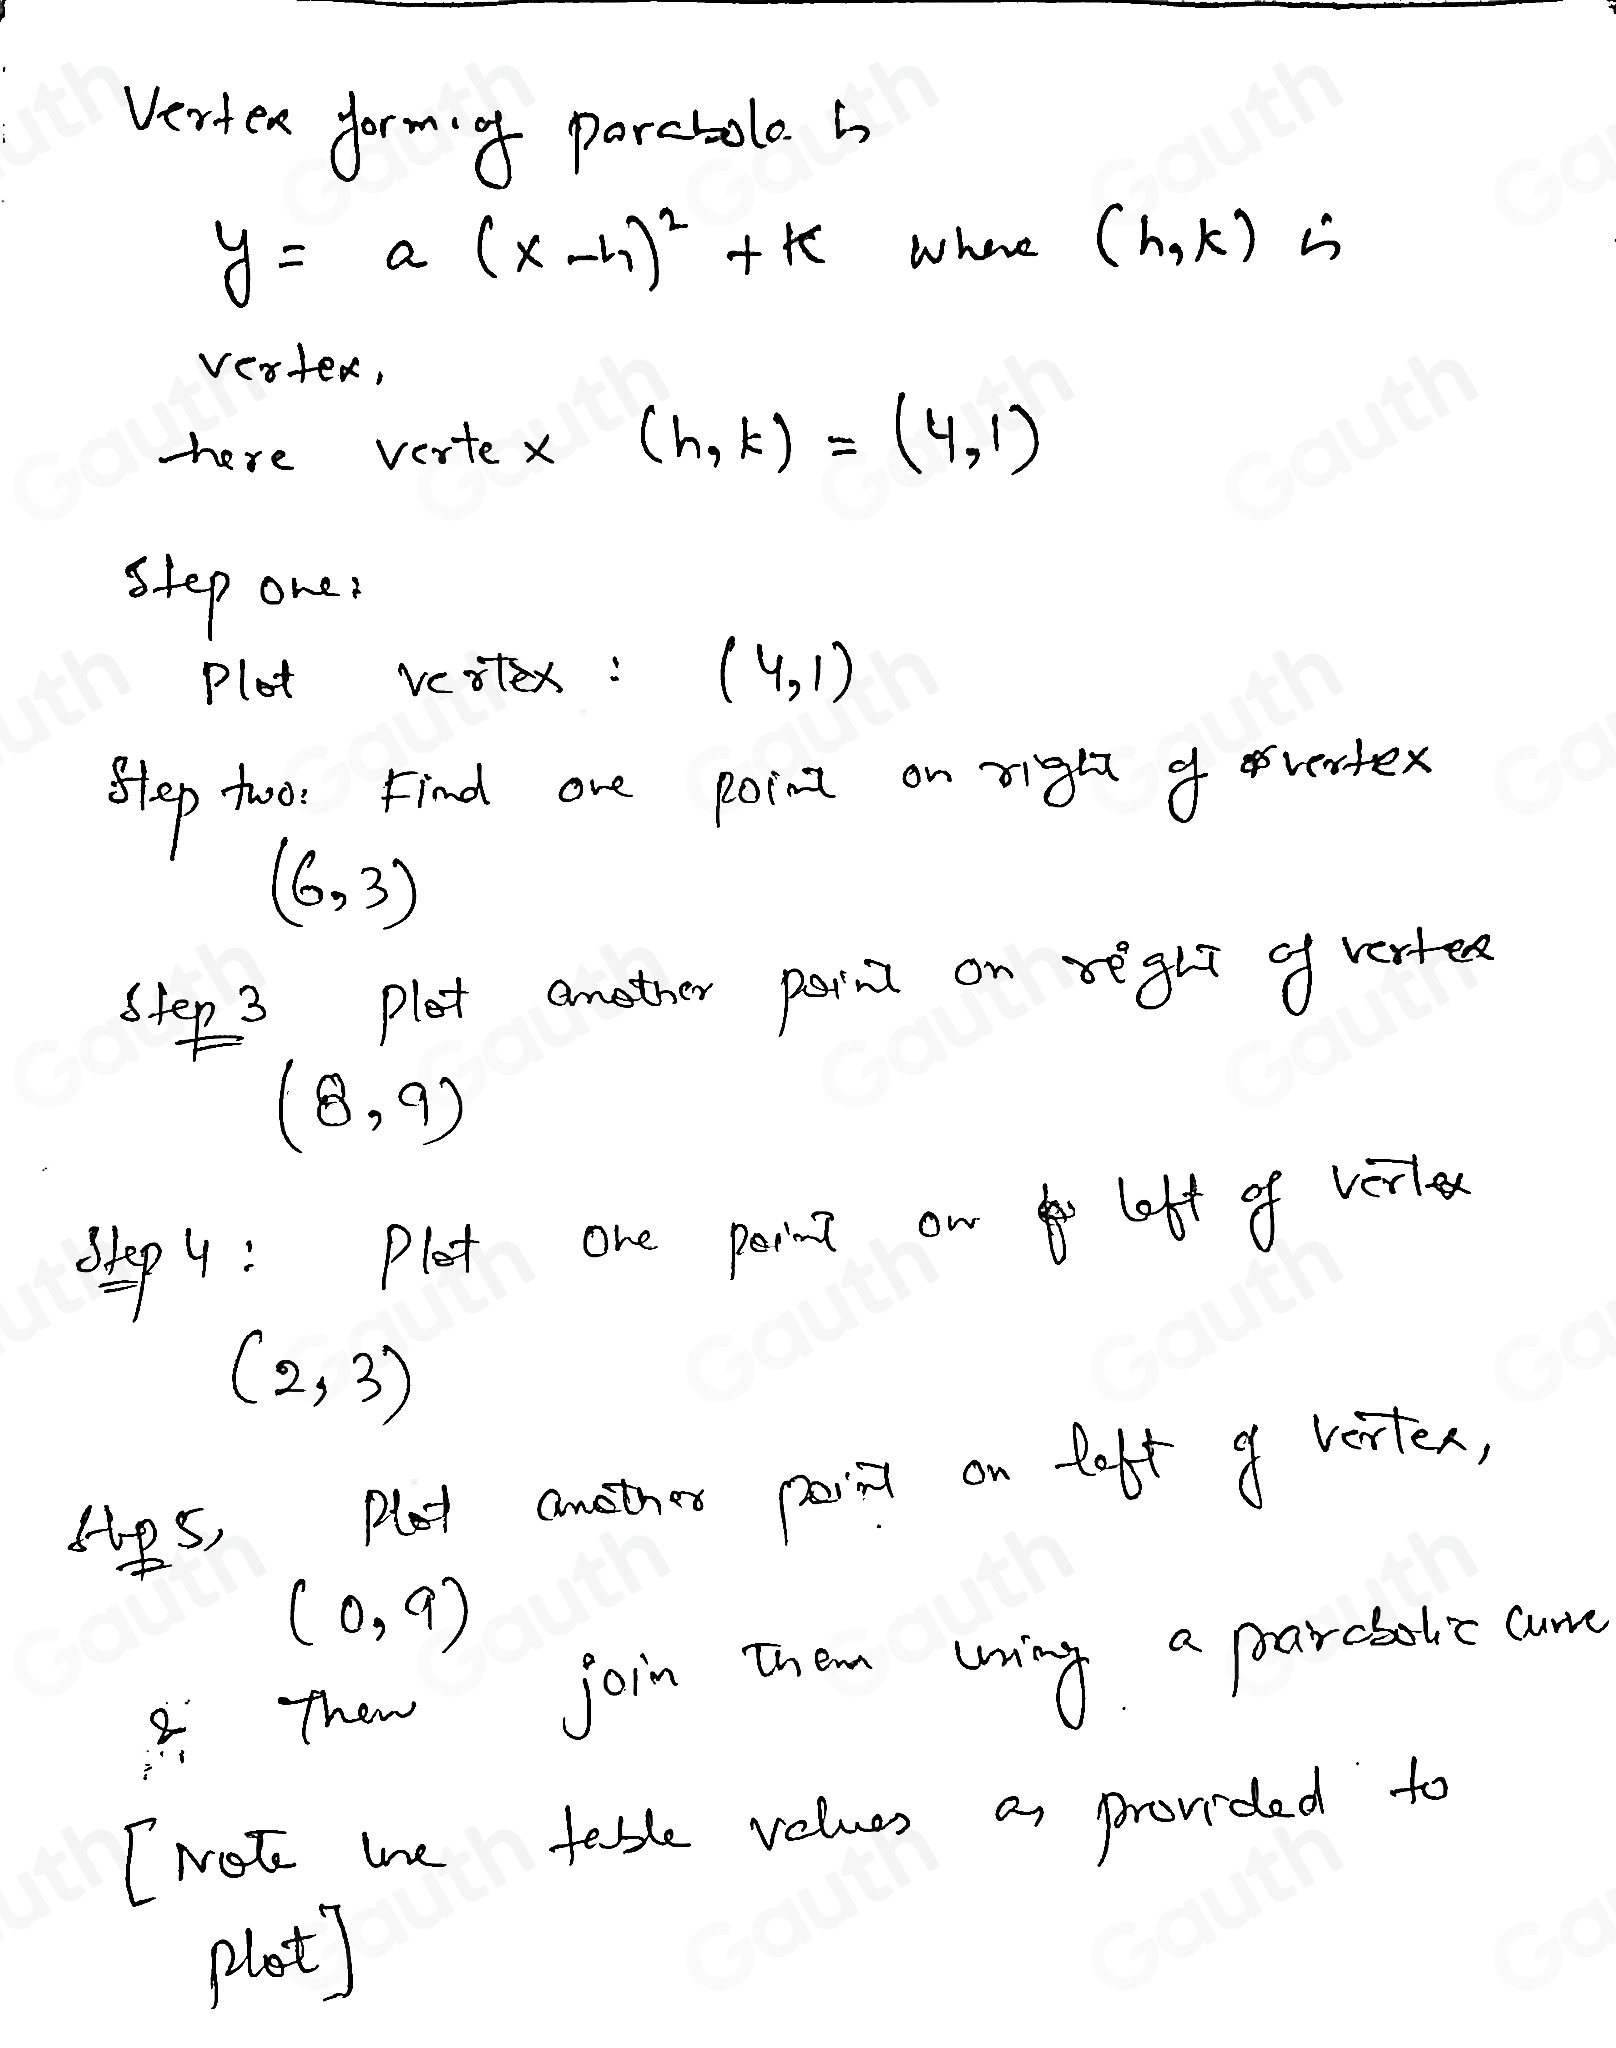 Vertex form of parabola is
y = a (x-h)² + k where (h,k) is
vertex,
here vertex (h, k) = (4,1)
Step one:
Plot vertex : (4,1)
Step two: Find one point on right of vertex
(6,3)
Step 3 Plot another point on right of vertex
(8,9)
Step 4 : Plot one point on left of vertex
(2,3)
Step 5, Plot another point on left of vertex,
(0,9)
& Then join them using a parabolic curve
[Note use table values as provided to
plot]
Gauth